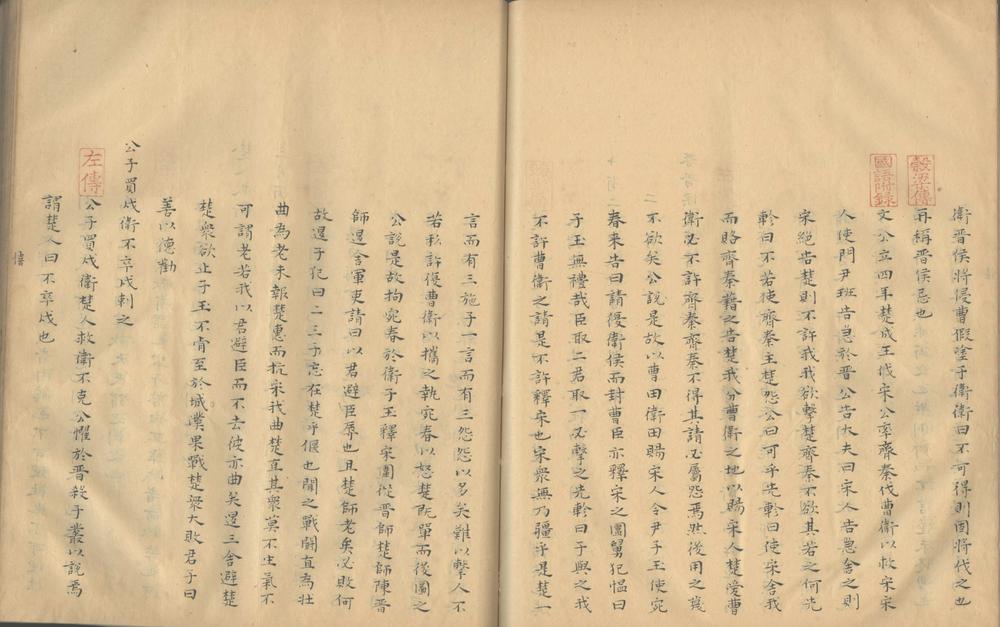 衛晉侯將侵曹假塗于衛衛曰不可得則固將伐之也
穀梁傳
再稱晉侯忌也
國語附錄
文公立四年楚成王伐宋公率齊秦伐曹衛以救宋宋
人使門尹班告急於晉公告大夫曰宋人告急舍之則
宋絕告楚則不許我我欲擊楚齊秦不欲其若之何先
軫曰不若使齊秦主楚怨公曰可乎先軫曰使宋舍我
而賂齊秦藉之告楚我分曹衛之地以賜宋人楚愛曹
衛必不許齊秦齊秦不得其請必屬怨焉然後用之蔑
不欲矣公說是故以曹田衛田賜宋人令尹子玉使宛
春來告曰請復衛侯而封曹臣亦釋宋之圍舅犯慍曰
子玉無禮哉臣取二君取一必擊之先軫曰子與之我
不許曹衛之請是不許釋宋也宋衆無乃彊乎是楚一
言而有三施子一言而有三怨怨以多矣難以擊人不
若私許復曹衛以攜之執宛春以怒楚既單而後圖之
公說是故拘宛春於衛子玉釋宋圍從晉師楚師陳晉
師退舍軍吏請曰以君避臣辱也且楚師老矣必敗何
故退子犯曰二三子忘在楚乎偃也聞之戰鬬直為壯
曲為老未報楚惠而抗宋我曲楚直其衆莫不生氣不
可謂老若我以君避臣而不去彼亦曲矣退三舍避楚
楚衆欲止子玉不肯至於城濮果戰楚衆大敗君子曰
善以德勸
公子買戍衛不卒戍刺之
左傳
公子買戍衛楚人救衛不克公懼於晉殺子叢以說焉
謂楚人曰不卒戍也